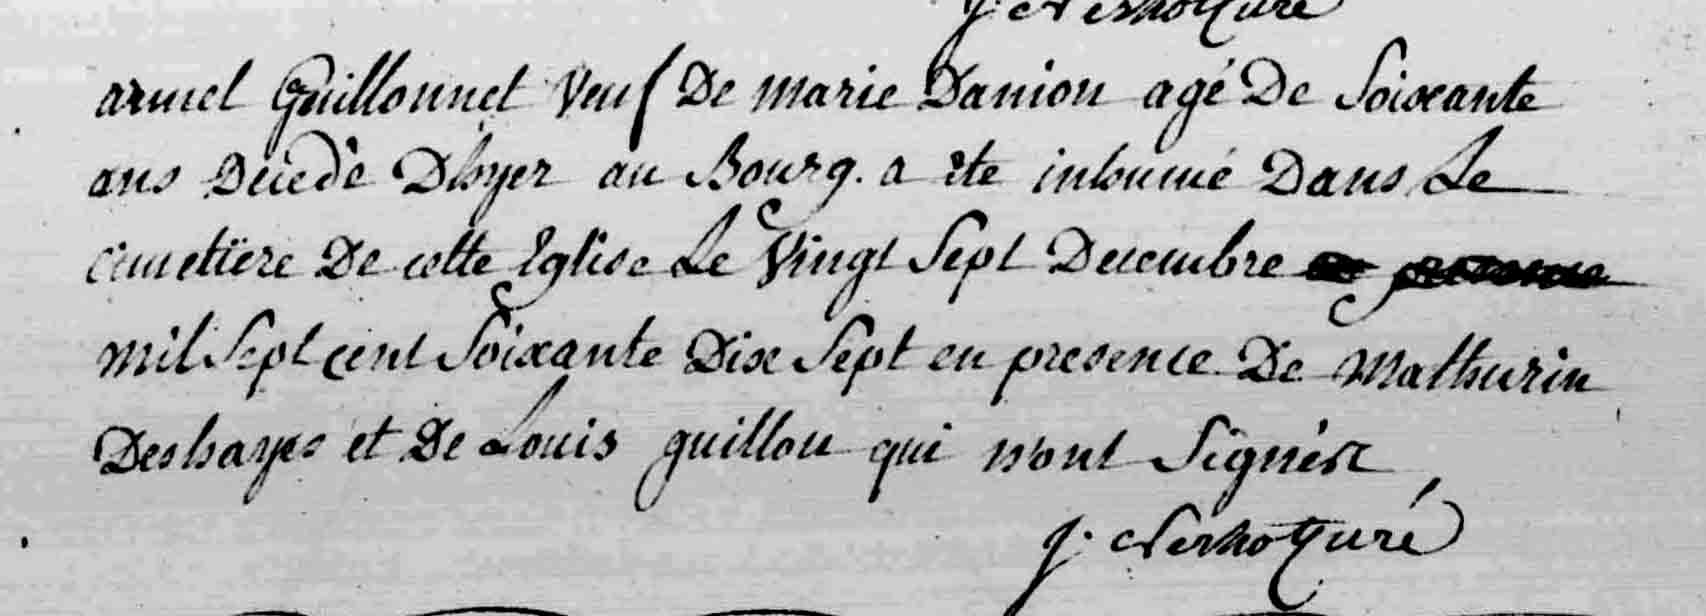 armel Guillonnet Veuf De marie Danion agé De Soixante
ans Decedé D'hyer au Bourg. a ete inhumé Dans Le
cimetiere De cette Eglise Le Vingt Sept Decembre
mil Sept cent Soixante Dix Sept en presence De Mathurin
Deshayes et De Louis guillou qui n'ont Signés
j. curé